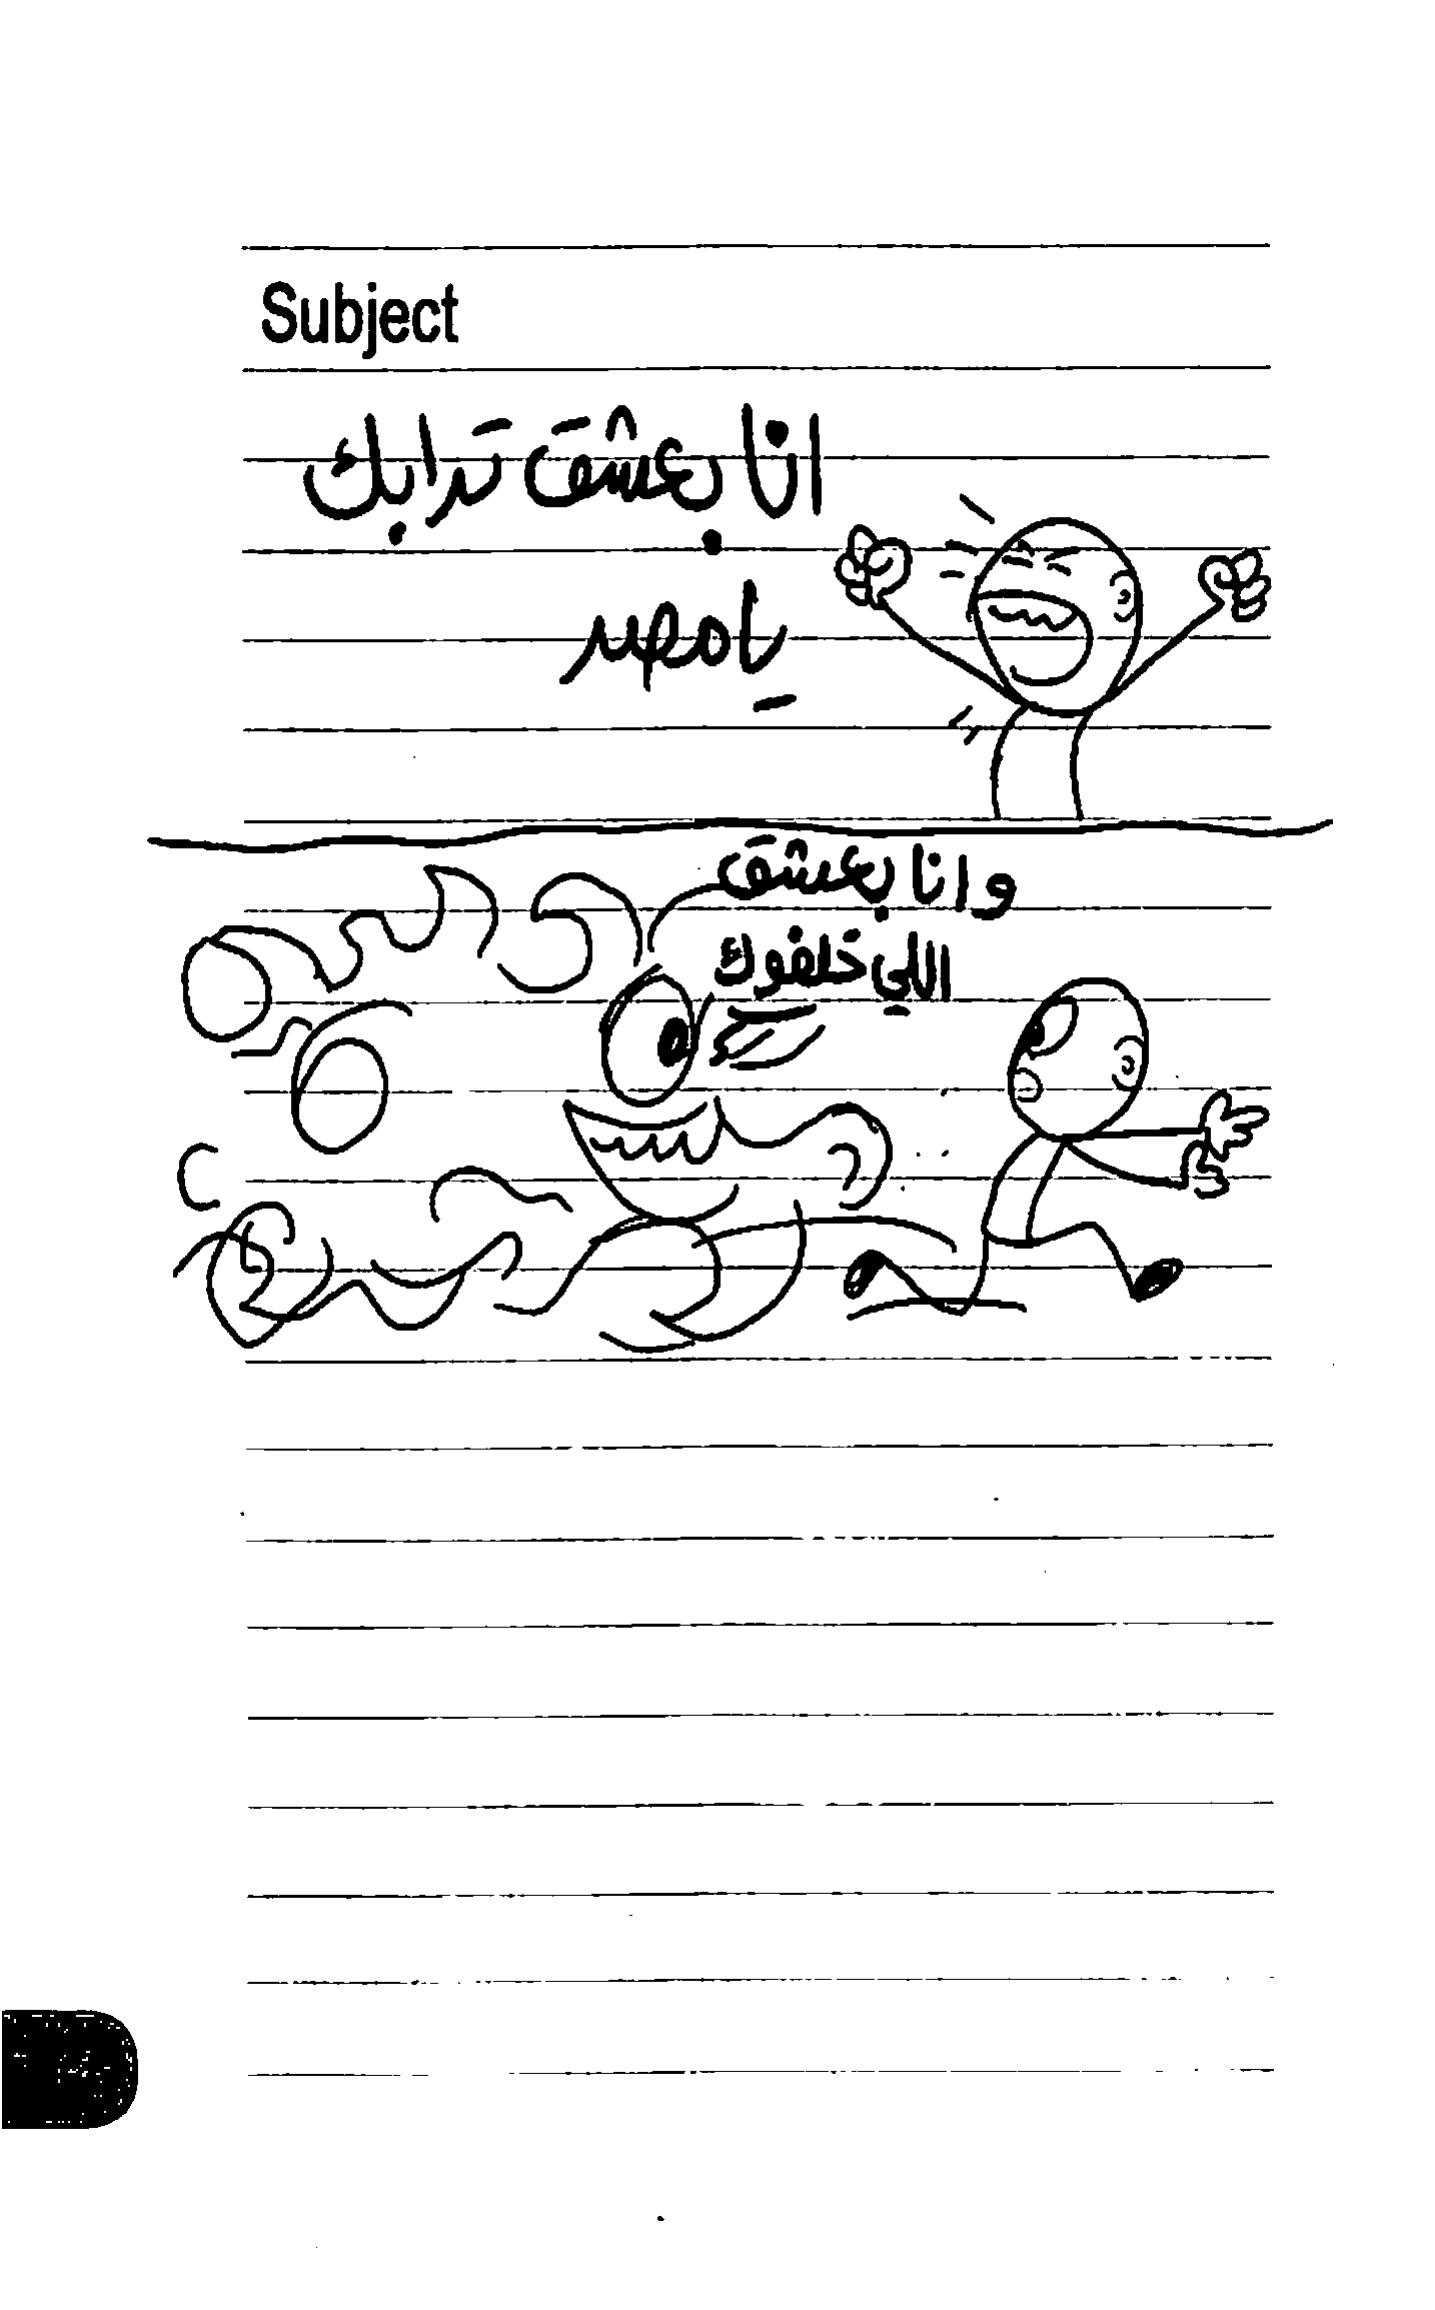 Subject
انا بعشق ترابك
يا مصر
وانا بعشق
اللي خلفوك